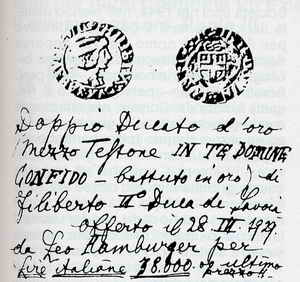 Doppio Ducato d'oro
(Mezzo Testone IN TE DOMINE
CONFIDO - battuto in oro) di
Filiberto IIº Duca di Savoia
offerto il 28 III 1929
da Leo Hamburger per
lire italiane 38.000 ultimo
prezzo!!